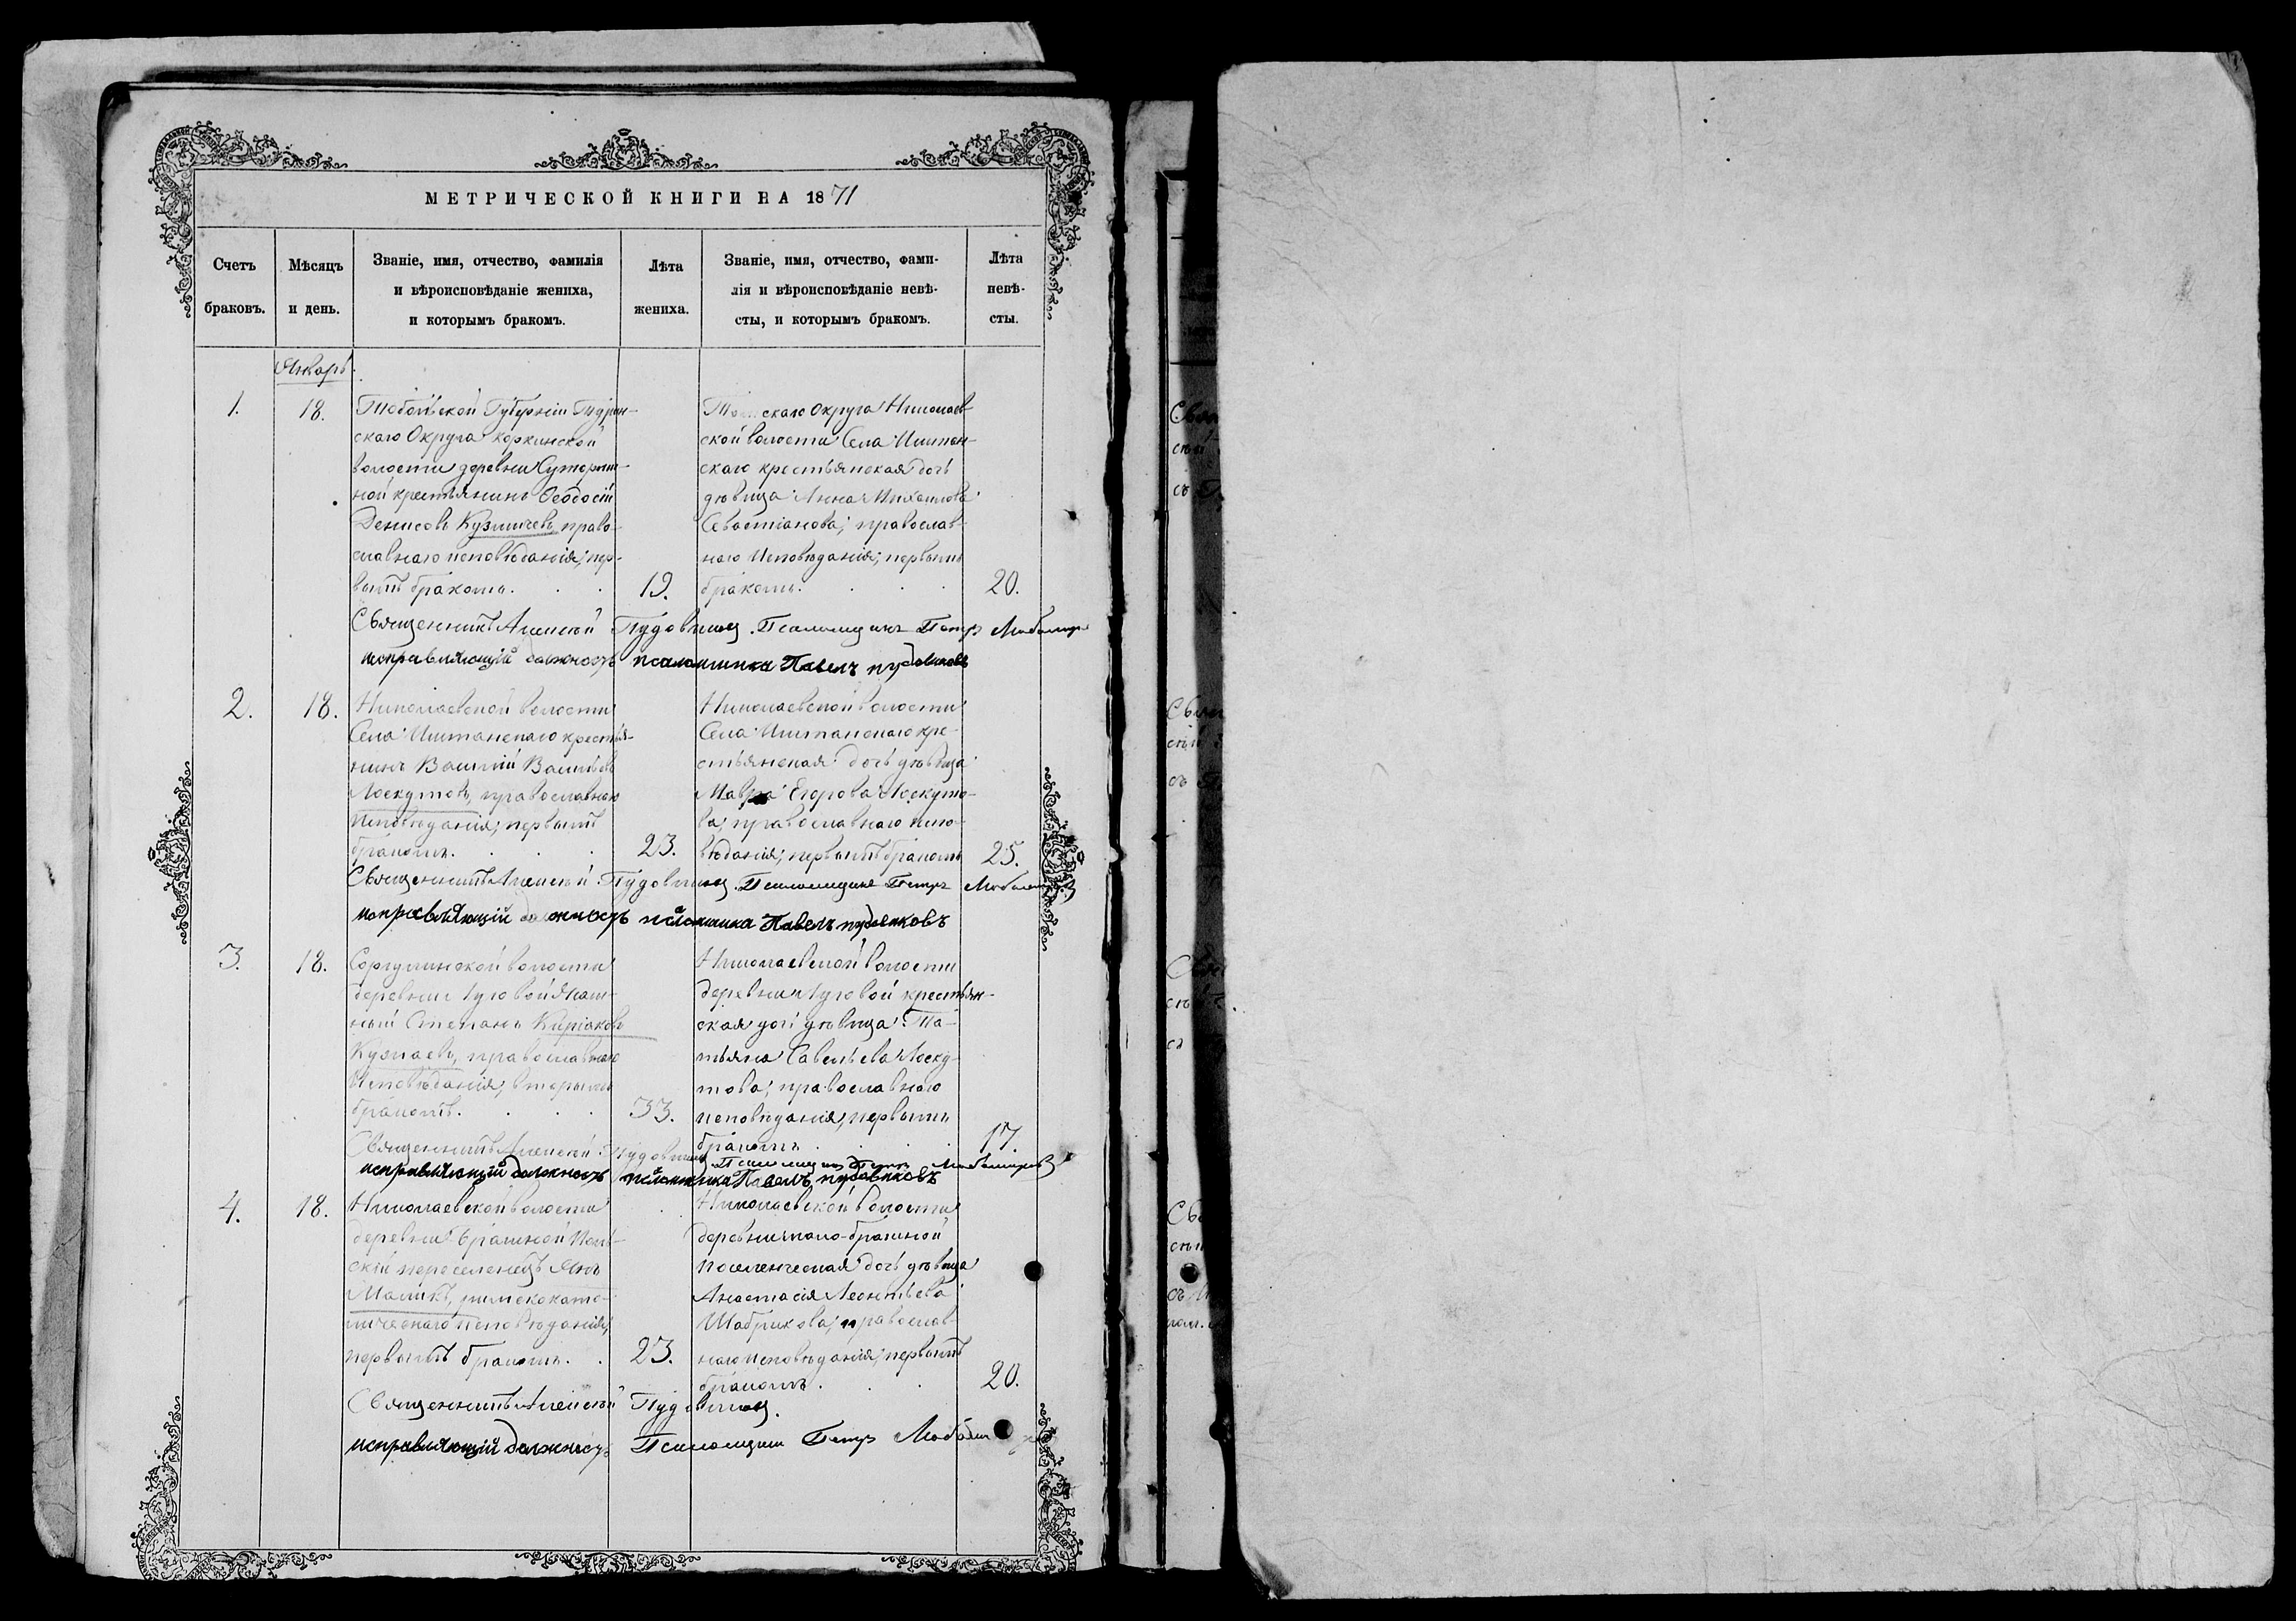 МЕТРИЧЕСКОЙ КНИГИ НА 1871
Счетъ браковъ.
Мѣсяцъ и день.
Званіе, имя, отчество, фамилія
и вѣроисповѣданіе жениха,
и которымъ бракомъ.
Лѣта жениха.
Званіе, имя, отчество, фами-
лія и вѣроисповѣданіе невѣ-
сты, и которымъ бракомъ.
Лѣта
невѣ-
сты.
Январь.
1.
18.
Тобольской Губерніи Турин-
скаго Округа Коркинской
волости деревни
ной крестьянинъ Ѳеодосій
Денисовъ Кузмичевъ, право-
славнаго исповѣданія; пер-
вымъ бракомъ.
19.
скаго Округа Николаев-
ской волости Села Иштан-
скаго крестьянская дочь
дѣвица Анна Михаилова
Севастіанова; православ-
наго Исповѣданія; первымъ
бракомъ.
20.
Священникъ Алексѣй Пудовиковъ. Псаломщикъ Петръ
исправляющій должность псаломщика Павелъ пудовиковъ
2.
18.
Николаевской волости
Села Иштанскаго крестья-
нинъ Василій Васильевъ
Лоскутовъ, православнаго
Исповѣданія; первымъ
бракомъ.
23.
Николаевской волости
Села Иштанскаго кре-
стьянская дочь дѣвица
Мавра Егорова Лоскуто-
ва; православнаго испо-
вѣданія; первымъ бракомъ
25.
Священникъ Алексѣй Пудовиковъ. Псаломщикъ Петръ
исправляющій должность псаломщика Павелъ пудовиковъ
3.
18.
волости
деревни Луговой
Степанъ Киріаковъ
православнаго
Исповѣданія; вторымъ
бракомъ.
33.
Николаевской волости
деревни Луговой крестьян-
ская дочь дѣвица Та-
тьяна Савельева Лоску-
това; православнаго
исповѣданія, первымъ
бракомъ
17.
Священникъ Алексѣй Пудовиковъ
Псаломщикъ Петръ
исправляющій должность псаломщика Павелъ пудовиковъ
4.
18.
Николаевской волости
деревни Брагиной Поль-
скій переселенецъ Янъ
римскокато-
лическаго Исповѣданія;
первымъ бракомъ.
23.
Николаевской волости
деревни мало-брагиной
поселенческая дочь дѣвица
Анастасія Леонтьева
Шабрикова; православ-
наго исповѣданія; первымъ
бракомъ.
20.
Священникъ Алексѣй Пудовиковъ.
исправляющій должность Псаломщика Петръ